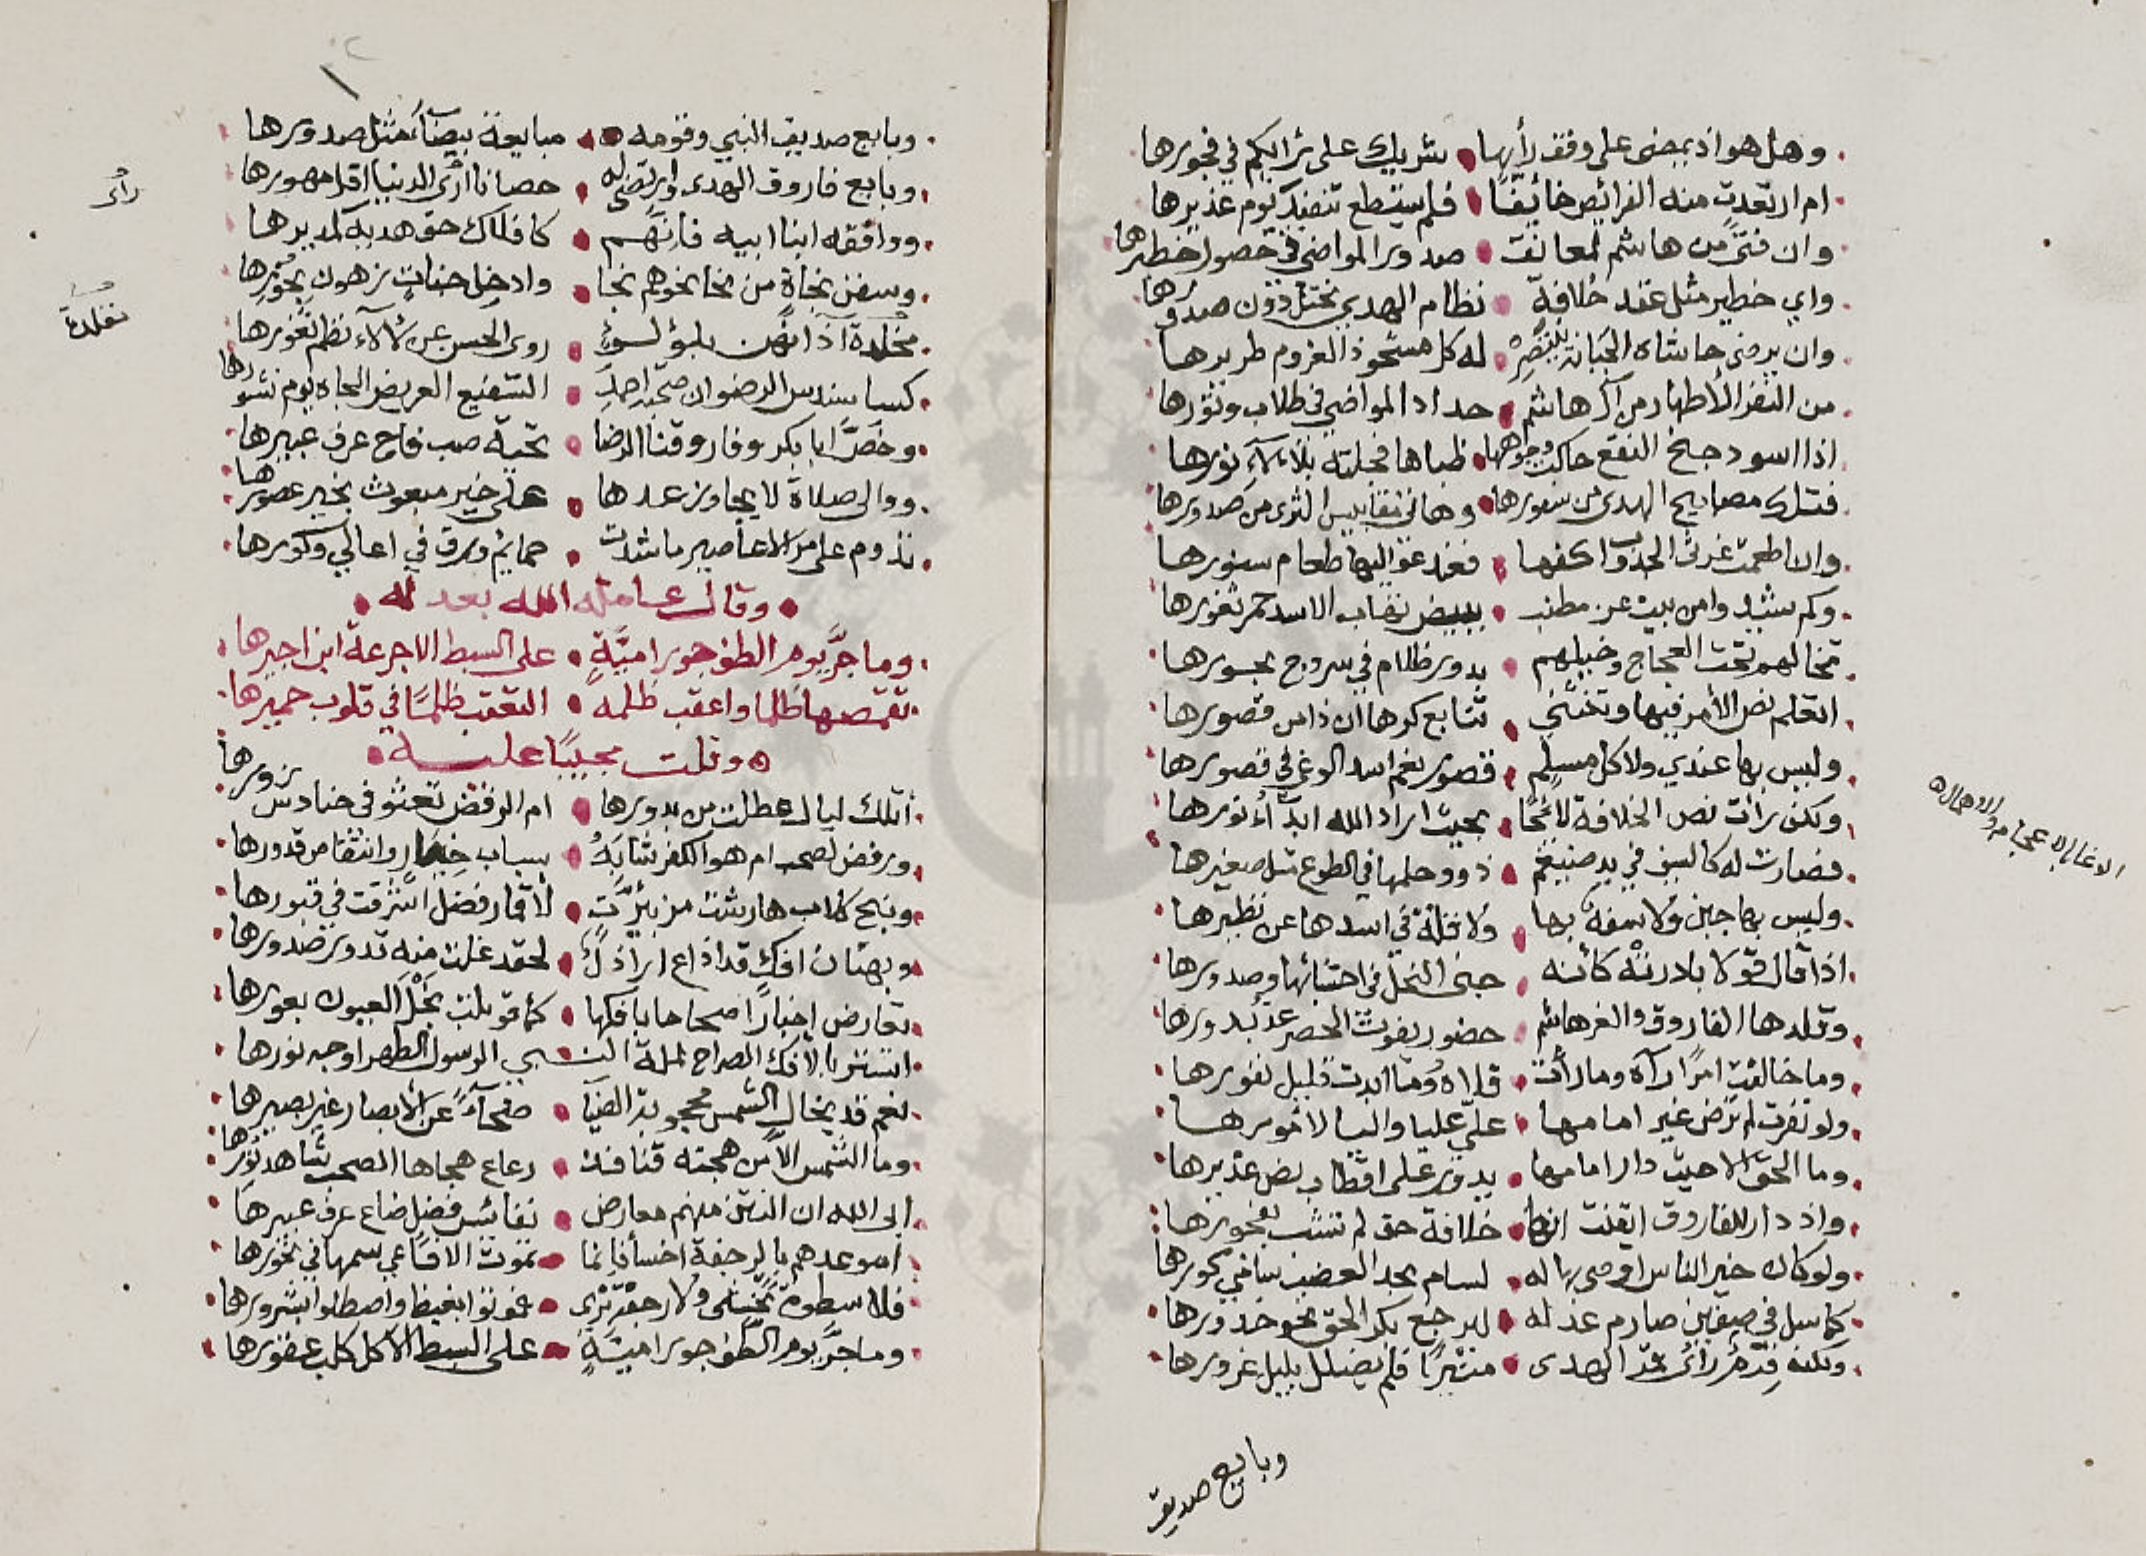 وهل هو اذ يمضى على وفق رأيها شريك على شرابكم في فجورها
ام ارتعدت منه الفرائص خائفا فلم يستطع تنفيذ يوم غديرها
وان فتى من هاشم لمعانق صدور المواضي في حصول خطيرها
واي خطير مثل عقد خلافة نظام الهدى يختل دون صدورها
وان يرضى حاشاه الجبانة له كل مشحوذ الغروم طريرها
من النفر الاطهار من آل هاشم حداد المواضي في طلاب وتورها
اذا اسود جنح النقع حاكت وجوهها ظباها فجلته بلألآء نورها
فتلك مصابيح الهدى من سورها وهاتي مقابيس الثرى من صدورها
وان اطعمت غرثى الجدوب اكفها فغدغوا اليها طعام سنورها
وكم شيد وامن بيت عز مطنب ببيض نصاب الاسد حمر ثغورها
تخالهم تحت العجاج وخيلهم بدور ظلام في سروج بحورها
اتعلم نص الأمر فيها وتختشي تتابع كرها ان ذا من قصورها
وليس بها عندي ولا كل مسلم قصور نعم اسد الوغى في قصورها
ولكن رأت نص الخلافة لائحا بحيث اراد الله ابدآء نورها
فصارت له كالسيف في يد ضيغم ذوو حلمها في الطوع مثل صغيرها
وليس بها جبن ولا سفه بها ولا قلة في اسدها عن نظيرها
اذا قال قولا بادرته كأنه جنى النحل في احشائها وصدورها
وقلدها الفاروق والغر هاشم حضور يفوت الحصر عد بدورها
وما خالفت امرا رآه وما رأت قلاه وما ابدت قليل نفورها
ولو نفرت لم ترض غير امامها علي عليا واليا لامورها
وما الحق الا حيث دار امامها يدور على اقطاب نص غديرها
واذ دار للفاروق ايقنت انها خلافة حق لم تشب بفجورها
ولو كان خير الناس اوصى بها له لسام بحد العضب نيا في كورها
كما سل في صفين صارم عدله ليرجع بكر الحق نحو خدورها
ولكنه قدما رأى سمت الهدى منيرا فلم يضلل بليل غرورها
الاغارة عجام والاهمال
وبايع صديق
وبايع صديق النبي وقومه مبايعة بيضآء مثل صدورها
وبايع فاروق الهدى وارتضى له حصانا ارى الدنيا اقل مهورها
ووافقه ابنا ابيه فانهم كافلاك حق هديه كمديرها
وسفن نجاة من نحا نحوهم نجا وادخل جنات زهون بحورها
مخلدة اذانهن بلؤلوء روى الحسن عن لألآء نظم ثغورها
كسا سندس الرضوان صحب احمد الشفيع العريض الجاه يوم نشورها
وخص ابا بكر وفاروقنا الرضا تحية صب فاح عرف عبيرها
ووالى صلاة لا يجاوز عدها على خير مبعوث بخير عصورها
تدوم على مر الاعاصير ما شدت حمايم ورق في اعالي وكورها
وقال عامله الله بعدله
وما جر يوم الطف جور امية على السبط الا جرعة ابن اجيرها
تقمصها ظلما واعقب ظلمه التعقب ظلما في قلوب حميرها
وقلت مجيبا عليه
أتلك ليال عطلت من بدورها ام الرفض تعثو في حنادس زورها
ورفض لصحب ام هو الكفر شابه بسباب خيار وانتقاص قدورها
ونبح كلاب هارشت مزبئرت لأقمار فضل اشرقت في قبورها
وبهتان افك قد اذاع اراذل لحقد غلت منه قدور صدورها
تعارض اخبارا صحاحا بافكها كما قوبلت نجل العيون بعورها
استتر بالافك الصراح لملة النـ ـبي الرسول الطهر اوجه نورها
نعم قد يخال الشمس محجوبة الضيا ضحآء عن الأبصار غير بصيرها
وما الشمس الا من هجته قنافذ رعاع هجاها الصحب شاهد زورها
ابى الله ان الذين منهم معارض نفائس فضل ضاع عرف عبيرها
اموعدهم بالرجفة اخسأ فانما تموت الافاعي سمها في نحورها
فلا سطوة تخشى ولا رجعة ترى فموتوا بغيظ واصطلوا بشرورها
وما جر يوم الطف جور امية على السبط الا كل كلب عقورها
رأى